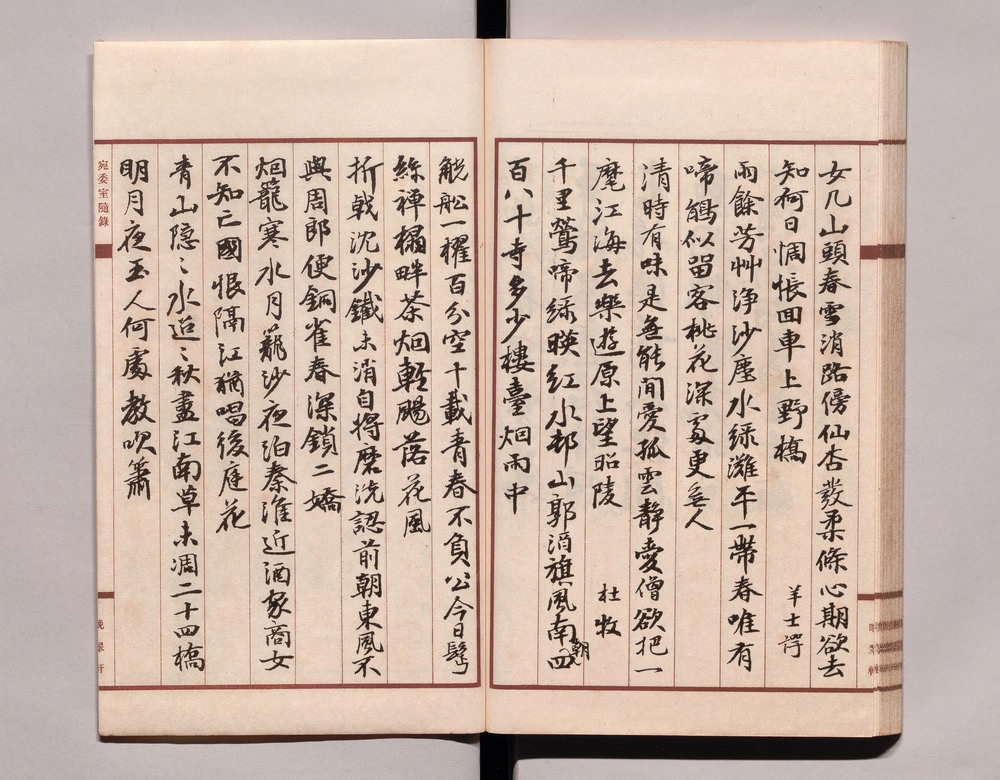 女几山頭春雪消路傍仙杏發柔條心期欲去
知何日惆悵回車上野橋
羊士諤
雨餘芳艸淨沙塵水綠灘平一帶春唯有
啼鵑似留客桃花深處更無人
清時有味是無能閒愛孤雲靜愛僧欲把一
麾江海去樂遊原上望昭陵
杜牧
千里鶯啼綠暎紅水邨山郭酒旗風南朝四
百八十寺多少樓臺烟雨中
觥船一櫂百分空十載青春不負公今日鬢
絲禪榻畔茶烟輕颺落花風
折戟沈沙鐵未消自將磨洗認前朝東風不
與周郎便銅雀春深鎖二嬌
烟籠寒水月籠沙夜泊秦淮近酒家商女
不知亡國恨隔江猶唱後庭花
青山隱〻水迢〻秋盡江南草未凋二十四橋
明月夜玉人何處教吹簫
宛委室隨錄
晚翠軒